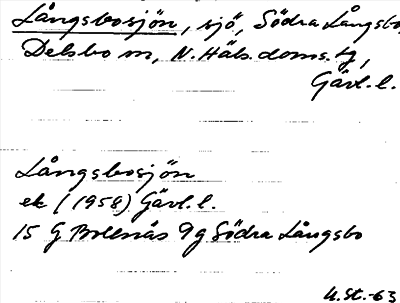 Långsbosjön, sjö, Södra Långsbo,
Delsbo sn, N. Häls. doms. tg,
Gävl. l.
Långsbosjön
ek (1958) Gävl. l.
15 G Bollnäs 9g Södra Långsbo
U.St.-63